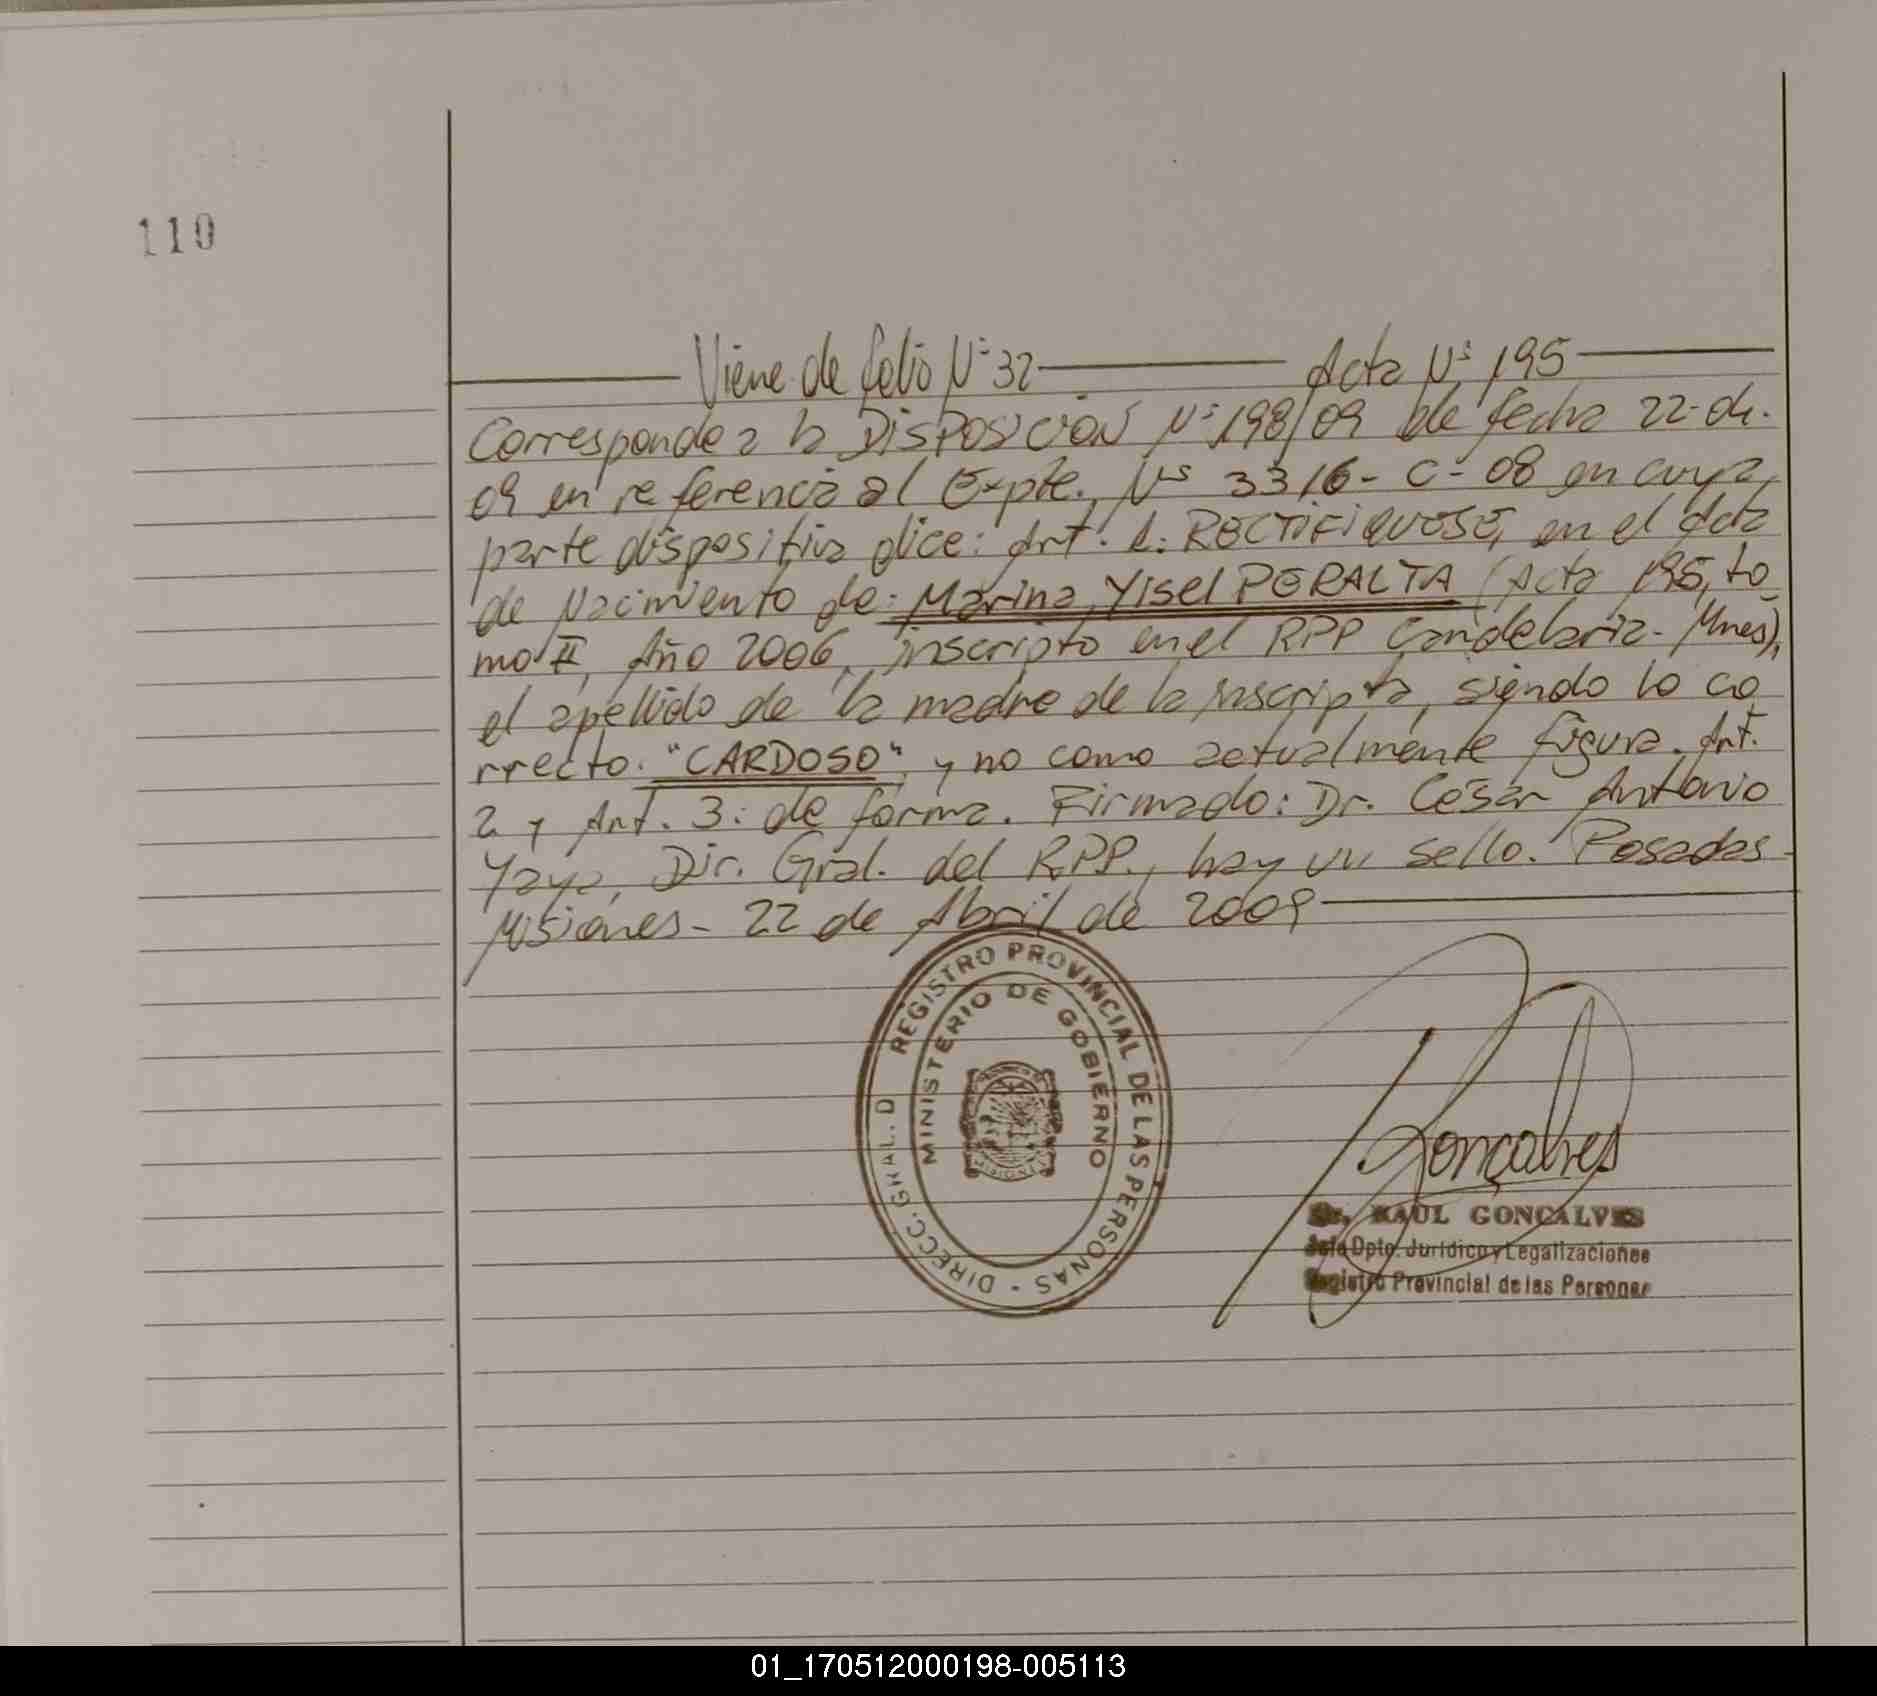 110
Viene de folio Nº 32 Acta Nº 195
Corresponde a la DISPOSICIÓN Nº 198/09 de fecha 22-04-
09 en referencia al Expte. Nº 3316-C-08 en cuya
parte dispositiva dice: Art. 1: RECTIFIQUESE, en el Acta
de Nacimiento de: Marina Yisel PERALTA (Acta 195, to-
mo II, Año 2006, inscripto en el RPP Candelaria-Mnes),
el apellido de la madre de la inscripta, siendo lo co
rrecto. "CARDOSO", y no como actualmente figura. Art.
2 y Art. 3: de forma. Firmado: Dr. César Antonio
Yaya, Dir. Gral. del RPP., hay un sello. Posadas-
Misiones- 22 de Abril de 2009
REGISTRO PROVINCIAL DE LAS PERSONAS - DIRECC. GRAL. D
MINISTERIO DE GOBIERNO
MISIONES
Gonçalves
Dr. RAUL GONÇALVES
Jefe Dpto. Jurídico y Legalizaciones
Registro Provincial de las Personas
01_170512000198-005113